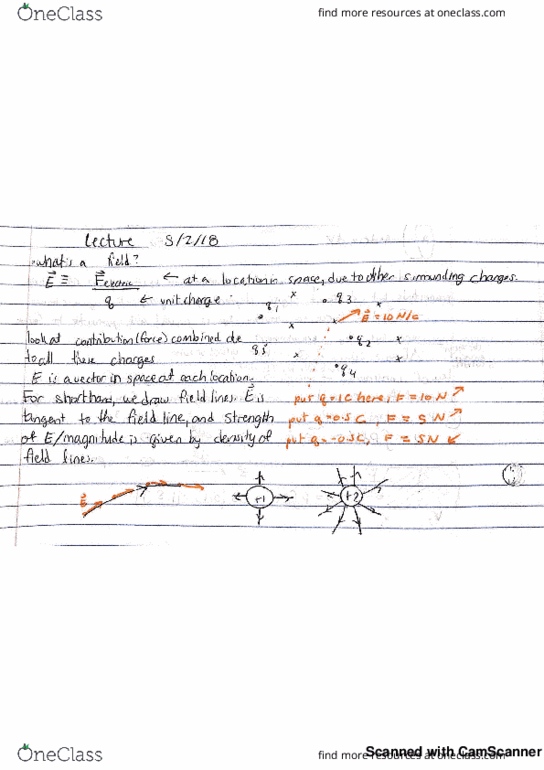 OneClass find more resources at oneclass.com
Lecture 3/2/18
·what's a field?
E⃗ ≡ F⃗electric ← at a location in space, due to other surrounding charges.
q ← unit charge
q1 x • q3 x
x E⃗ = 10 N/C
look at contribution (force) combined due
q5 x • q2 x
to all these charges
x • q4
E is a vector in space at each location.
For shorthand, we draw field lines. E⃗ is put q=1C here, F=10N ↗
tangent to the field line, and strength put q=0.5C, F=5N ↗
of E/magnitude is given by density of put q=-0.5C, F=5N ↙
field lines.
E⃗ +1 +2
OneClass find more resources at oneclass.com
Scanned with CamScanner